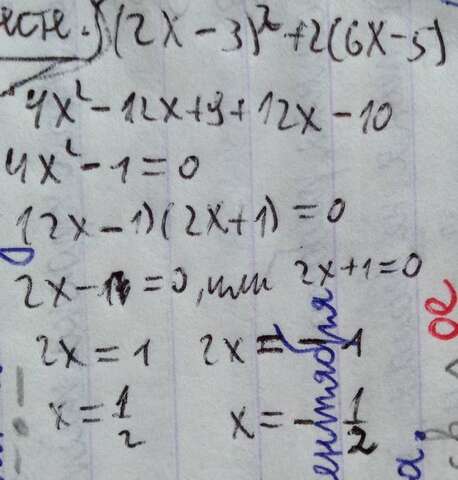 (2x-3)²+2(6x-5)
4x²-12x+9+12x-10
4x²-1=0
(2x-1)(2x+1)=0
2x-1=0, или 2x+1=0
2x=1 2x=-1
x=1/2 x=-1/2